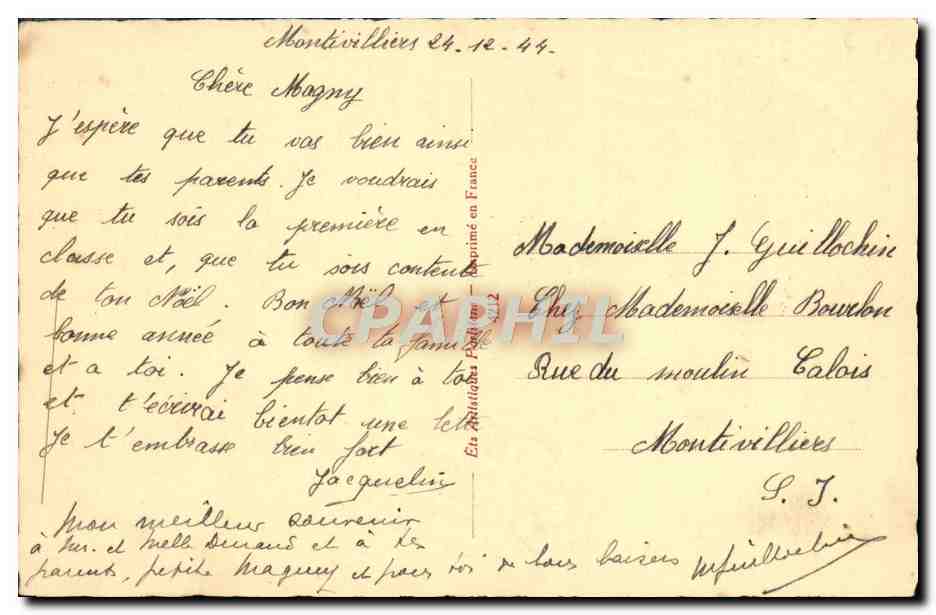 Montivilliers 24-12-44.
Chère Magny
J'espère que tu vas bien ainsi
que tes parents. Je voudrais
que tu sois la première en
classe et, que tu sois contente
de ton Noël. Bon Noël et
bonne année à toute ta famille
et a toi. Je pense bien à toi
et t'écrirai bientot une lettre
Je t'embrasse bien fort
Jacqueline
Mon meilleur souvenir
à Mr. et Melle Durand et à tes
parents, petite Magny et pour toi de bons baisers
Ets Artistiques Parisiens - Imprimé en France
4212
CPAPHIL
Mademoiselle J. Guillochin
Chez Mademoiselle Bourdon
Rue du moulin Calois
Montivilliers
S. I.